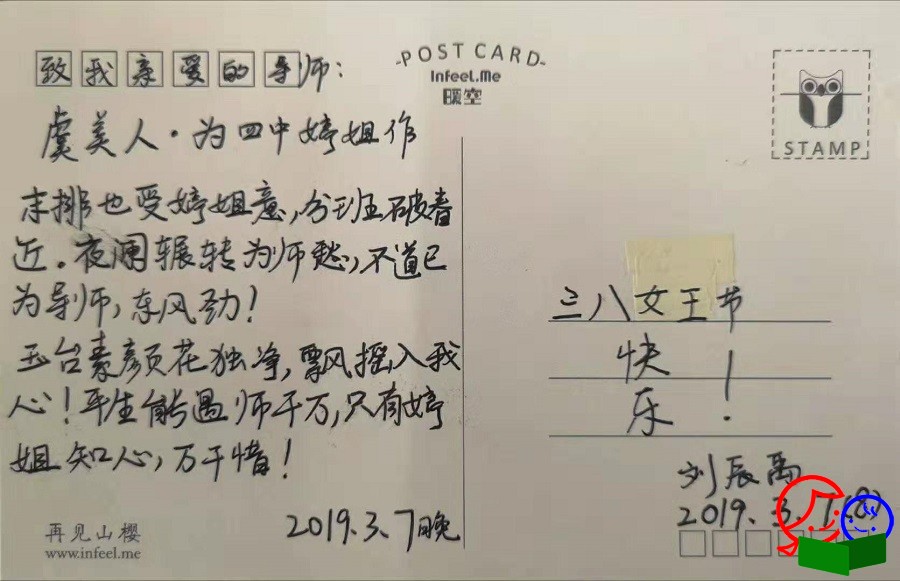 致我亲爱的导师：
POST CARD
Infeel.Me
暖空
STAMP
虞美人·为四中婷姐作
末排也受婷姐意，分班五破春
近。夜阑辗转为师愁，不道已
为导师，东风劲！
玉台素颜花独净，飘摇入我
心！平生能遇师千万，只有婷
姐知心，万千惜！
2019.3.7晚
再见山樱
www.infeel.me
三八女王节
快
乐！
刘辰禹
2019.3.7(8)